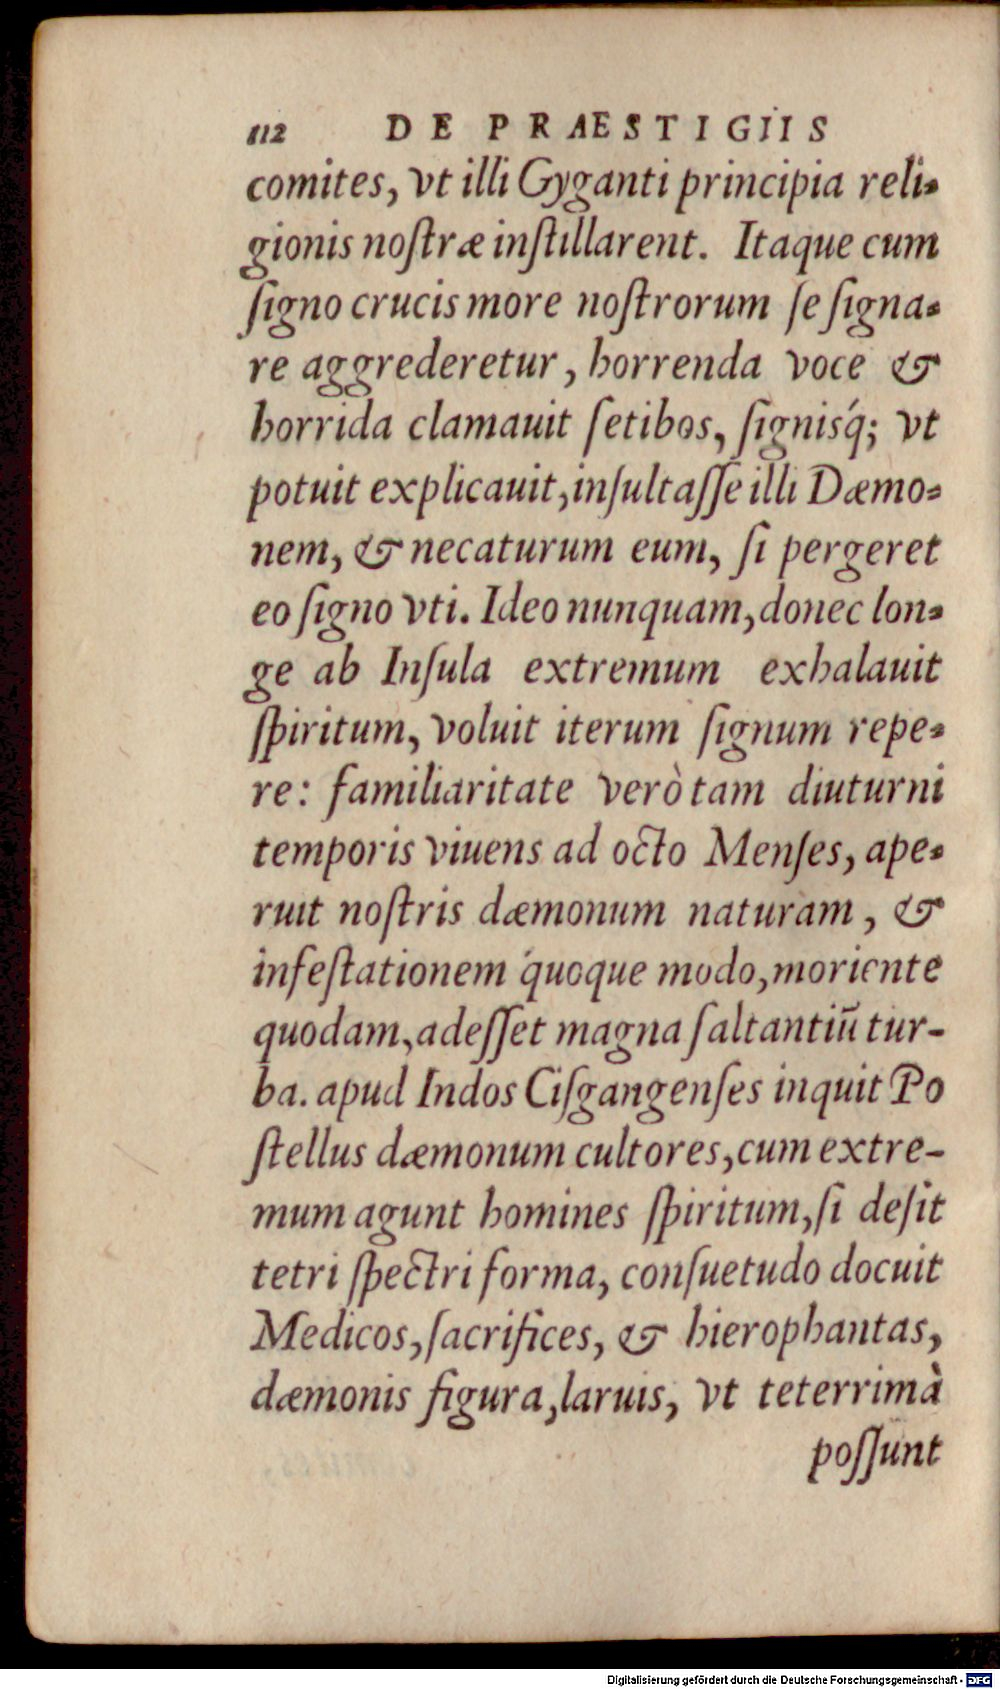 112 DE PRAESTIGIIS
comites, vt illi Gyganti principia reli-
gionis noſtræ inſtillarent. Itaque cum
ſigno crucis more noſtrorum ſe ſigna-
re aggrederetur, horrenda voce &
horrida clamauit ſetibos, ſignisq́; vt
potuit explicauit, inſultaſſe illi Dæmo-
nem, & necaturum eum, ſi pergeret
eo ſigno vti. Ideo nunquam, donec lon-
ge ab Inſula extremum exhalauit
ſpiritum, voluit iterum ſignum repe-
re: familiaritate verò tam diuturni
temporis viuens ad octo Menſes, ape-
ruit noſtris dæmonum naturam, &
infeſtationem quoque modo, moriente
quodam, adeſſet magna ſaltantiū tur-
ba. apud Indos Ciſgangenſes inquit Po
ſtellus dæmonum cultores, cum extre-
mum agunt homines ſpiritum, ſi deſit
tetri ſpectri forma, conſuetudo docuit
Medicos, ſacrifices, & hierophantas,
dæmonis figura, laruis, vt teterrimà
poſſunt
Digitalisierung gefördert durch die Deutsche Forschungsgemeinschaft - DFG